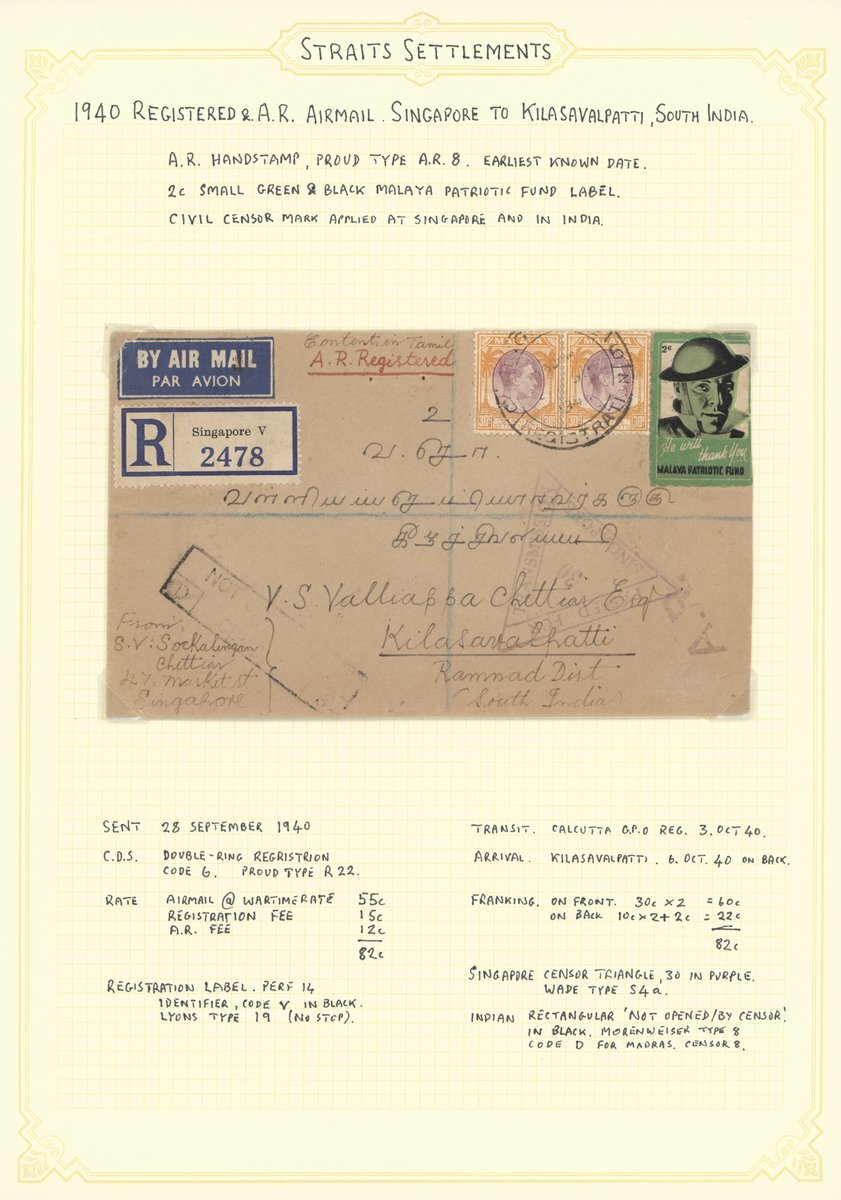 STRAITS SETTLEMENTS
1940 REGISTERED & A.R. AIRMAIL. SINGAPORE TO KILASAVALPATTI, SOUTH INDIA.
A.R. HANDSTAMP, PROUD TYPE A.R. 8. EARLIEST KNOWN DATE.
2c SMALL GREEN & BLACK MALAYA PATRIOTIC FUND LABEL.
CIVIL CENSOR MARK APPLIED AT SINGAPORE AND IN INDIA.
BY AIR MAIL
PAR AVION
Contents in Tamil
A.R. Registered
R
Singapore V
2478
MALAYA
30c
MALAYA
30c
REGISTRATI
2c
He will
thank You
MALAYA PATRIOTIC FUND
உ
NOT
D
V. S. Valliappa Chettiar Esq
Kilasavalpatti
Ramnad Dist
(South India)
A.R.
From,
S.V: Sockalingam
Chettiar
47, Market st
Singapore
SENT 28 SEPTEMBER 1940
C.D.S. DOUBLE-RING REGRISTRION
CODE G. PROUD TYPE R22.
RATE AIRMAIL @ WARTIME RATE 55c
REGISTRATION FEE 15c
A.R. FEE 12c
82c
REGISTRATION LABEL. PERF 14
IDENTIFIER, CODE V IN BLACK.
LYONS TYPE 19 (NO STOP).
TRANSIT. CALCUTTA G.P.O REG. 3. OCT 40.
ARRIVAL. KILASAVALPATTI. 6. OCT. 40 ON BACK.
FRANKING. ON FRONT. 30c × 2 = 60c
ON BACK 10c × 2 + 2c = 22c
82c
SINGAPORE CENSOR TRIANGLE, 30 IN PURPLE.
WADE TYPE S4a.
INDIAN RECTANGULAR 'NOT OPENED/BY CENSOR'.
IN BLACK. MORENWEISER TYPE 8
CODE D FOR MADRAS. CENSOR 8.